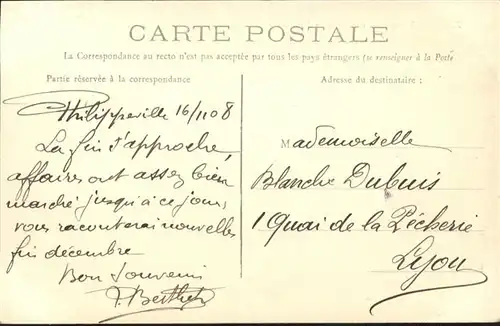 CARTE POSTALE
La Correspondance au recto n'est pas acceptée par tous les pays étrangers (se renseigner à la Poste
Partie réservée à la correspondance
Adresse du destinataire :
Philippeville 16/1108
La fin s'approche,
affaires ont assez bien
marché jusqu'à ce jour,
vous raconterai nouvelles
fin décembre
Bon Souvenir
Mademoiselle
Blanche Dubuis
1 Quai de la Pêcherie
Lyon